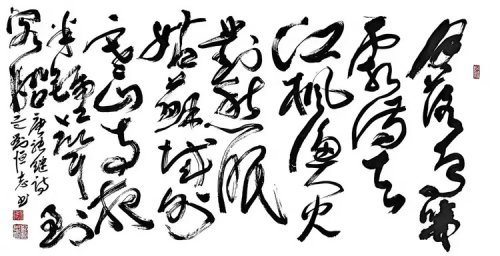 月落烏啼
霜滿天
江楓漁火
對愁眠
姑蘇城外
寒山寺夜
半鐘聲到
客船
唐張繼詩